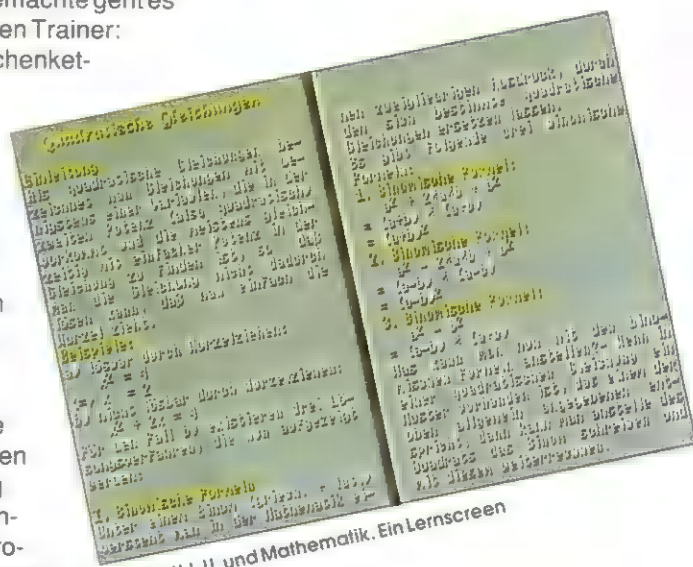 emachte geht es
en Trainer:
chenket-
Quadratische Gleichungen
Einleitung
Als quadratische Gleichungen be-
zeichnet man Gleichungen mit
einer Variablen, die in der
zweiten Potenz (also quadratisch)
vorkommt und die meistens gleich-
zeitig mit einfacher Potenz in der
Gleichung zu finden ist, so daß
man die Gleichung nicht dadurch
lösen kann, daß man einfach die
Wurzel zieht.
Beispiele:
a) lösbar durch Wurzelziehen:
= 4
= 2
b) nicht lösbar durch Wurzelziehen:
+ 2x = 4
Für den Fall b) existieren drei Lö-
sungsverfahren, die nun aufgezeigt
werden:
1. Binomische Formeln
Unter einem Binom (griech. -
versteht man in der Mathematik ei-
nen zweigliedrigen Ausdruck, durch
den sich bestimmte quadratische
Gleichungen ersetzen lassen.
Es gibt folgende drei binomische
Formeln:
1. Binomische Formel:
2. Binomische Formel:
3. Binomische Formel:
Was kann man nun mit den bino-
mischen Formeln anstellen? Wenn in
einer quadratischen Gleichung ein
Muster vorhanden ist, das einem der
oben allgemein angegebenen ent-
spricht, dann kann man anstelle des
Quadrats das Binom schreiben und
mit diesem weiterrechnen.
n
e
en
g
n-
ro-
und Mathematik. Ein Lernscreen